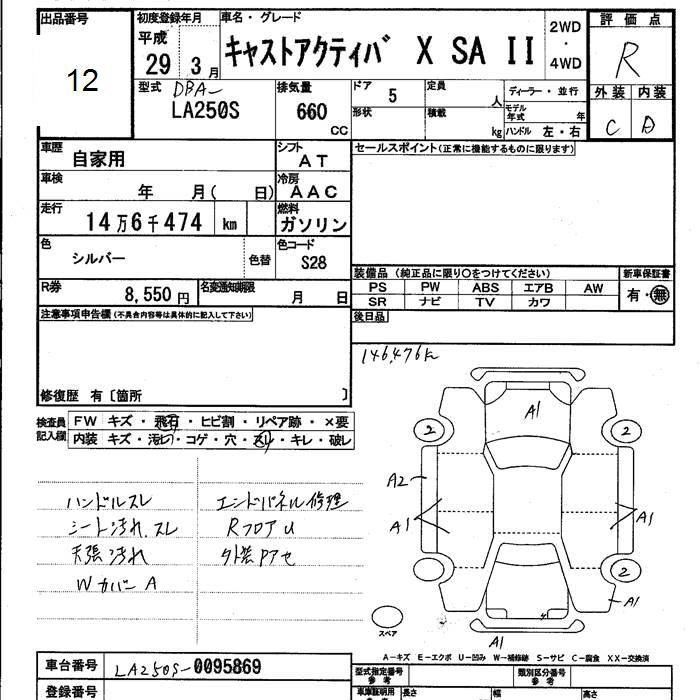 出品番号
12
初度登録年月
平成
29 3月
車名・グレード
キャストアクティバ X SA II
2WD
・
4WD
評価点
R
外装 内装
C D
型式 DBA-
LA250S
排気量
660
CC
ドア
5
定員
人
形状
積載
kg
ディーラー・並行
モデル年式 年
ハンドル 左・右
車歴
自家用
シフト
AT
車検
年 月( 日)
冷房
AAC
走行
14万6千474 km
燃料
ガソリン
色
シルバー
色替
色コード
S28
R券
8,550円
名変通知期限
月 日
セールスポイント(正常に機能するものに限ります)
装備品 (純正品に限り○をつけてください)
PS PW ABS エアB AW
SR ナビ TV カワ
新車保証書
有・無
後日品
注意事項申告欄(不具合内容等は具体的に記入して下さい)
修復歴 有〔箇所 〕
検査員記入欄
FW キズ・飛石・ヒビ割・リペア跡・×要
内装 キズ・汚れ・コゲ・穴・スレ・キレ・破レ
ハンドルスレ
シート汚れ、スレ
天張汚れ
Wカバー A
エンドパネル修理
RフロアU
外装Pアセ
146,476k
A1
2
2
A2
A1
A1
2
A1
A1
スペア
A-キズ E-エクボ U-凹み W-補修跡 S-サビ C-腐食 XX-交換済
車台番号
LA250S-0095869
登録番号
型式指定番号
参考
類別区分番号
参考
車庫証明用
長さ
幅
高さ